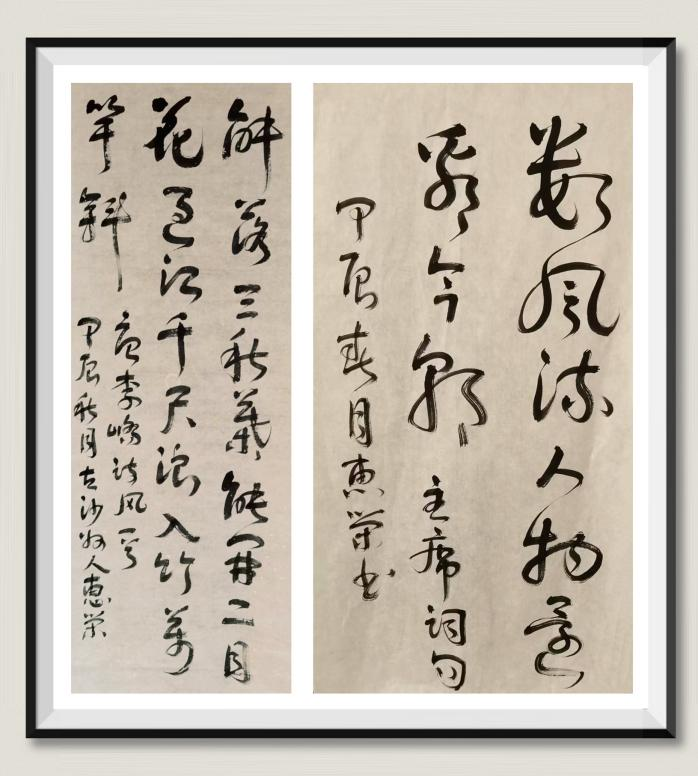 数风流人物还
看今朝 主席词句
甲辰春月惠荣书
解落三秋葉能開二月
花过江千尺浪入竹万
竿斜 唐李峤诗风
甲辰秋月古沙州人惠荣